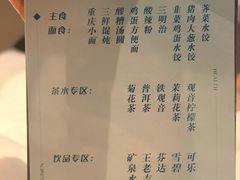 主食
面食：
荠菜水饺
猪肉大葱水饺
韭菜鸡蛋水饺
三明治
酸辣粉
鸡蛋方便面
醪糟汤圆
三鲜馄饨
重庆小面
HEALTH
茶水专区：
观音柠檬茶
茉莉花茶
铁观音
普洱茶
菊花茶
饮品专区：
可乐
雪碧
芬达
王老吉
矿泉水